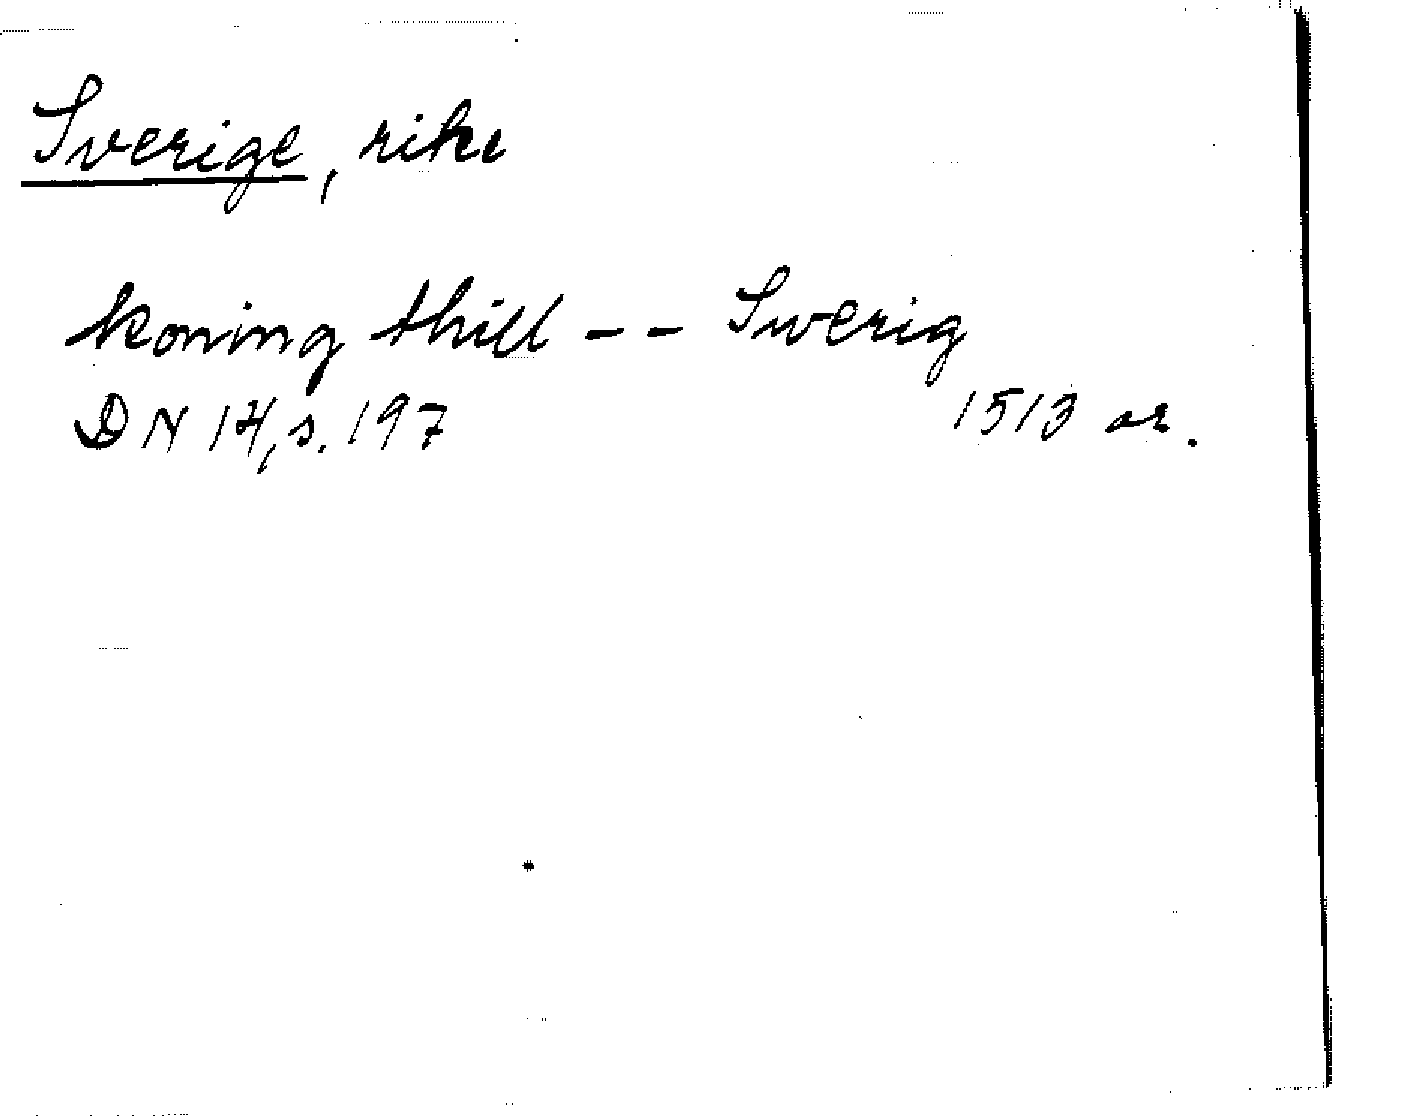 Sverige, rike
koning thill -- Swerig
DN 14, s. 197 1513 or.